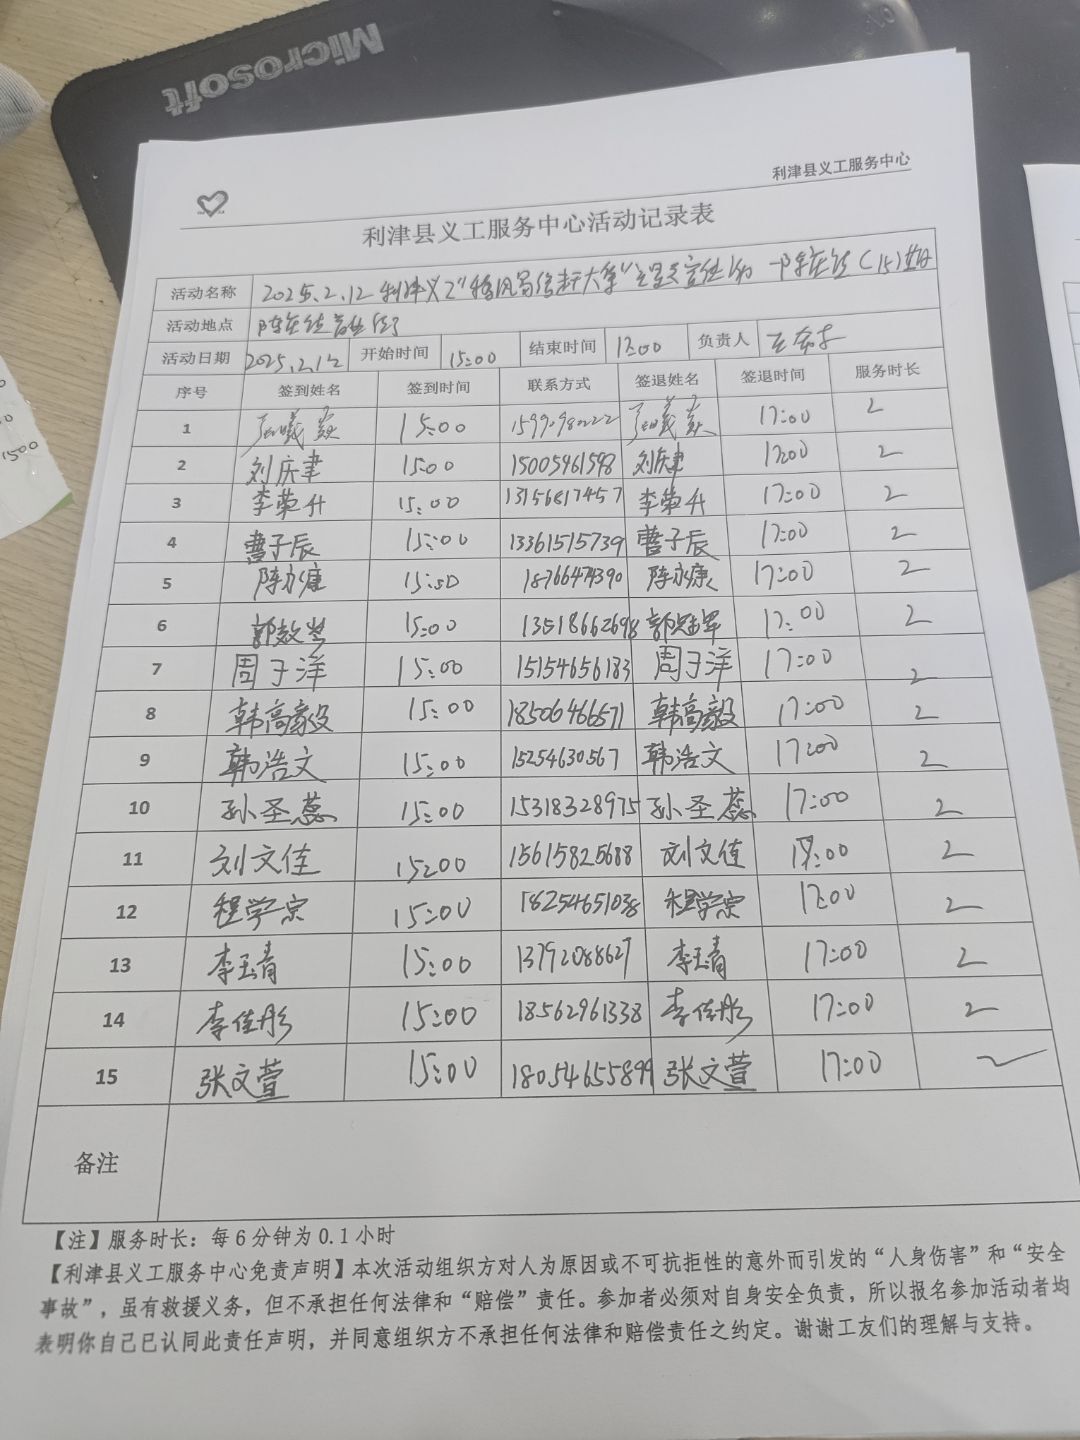 Microsoft
利津县义工服务中心
利津县义工服务中心活动记录表
活动名称 2025.2.12 利津义工"移风易俗 大集"主题宣传活动 —陈庄镇(15)
活动地点 陈庄镇
活动日期 2025.2.12 开始时间 15:00 结束时间 17:00 负责人
序号 签到姓名 签到时间 联系方式 签退姓名 签退时间 服务时长
1 15:00 17:00 2
2 刘庆聿 15:00 15005461598 刘庆聿 17:00 2
3 李荣升 15:00 13156817457 李荣升 17:00 2
4 曹子辰 15:00 13361515739 曹子辰 17:00 2
5 陈永康 15:00 18766474390 陈永康 17:00 2
6 15:00 13518662698 17:00 2
7 周子洋 15:00 15154656183 周子洋 17:00 2
8 韩高毅 15:00 18506466571 韩高毅 17:00 2
9 韩浩文 15:00 15254630567 韩浩文 17:00 2
10 孙圣蕊 15:00 15318328975 孙圣蕊 17:00 2
11 刘文佳 15:00 15615825688 刘文佳 17:00 2
12 程学宗 15:00 18254651038 程学宗 17:00 2
13 李玉青 15:00 13792088627 李玉青 17:00 2
14 李佳彤 15:00 18562961338 李佳彤 17:00 2
15 张文萱 15:00 18054655899 张文萱 17:00 2
备注
【注】服务时长：每6分钟为0.1小时
【利津县义工服务中心免责声明】本次活动组织方对人为原因或不可抗拒性的意外而引发的“人身伤害”和“安全
事故”，虽有救援义务，但不承担任何法律和“赔偿”责任。参加者必须对自身安全负责，所以报名参加活动者均
表明你自己已认同此责任声明，并同意组织方不承担任何法律和赔偿责任之约定。谢谢工友们的理解与支持。